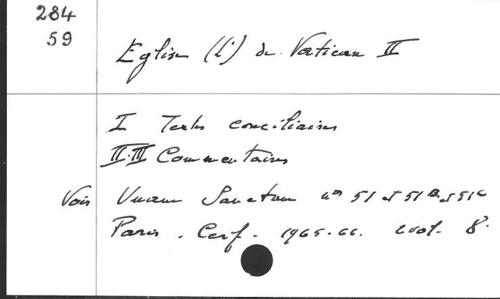 284
59
Eglise (L') de Vatican II
I Textes conciliaires
II-III Commentaires
Voir Unam Sanctam nos 51 et 51 B et 51 c
Paris. Cerf. 1965-66. 2 vol. 8°